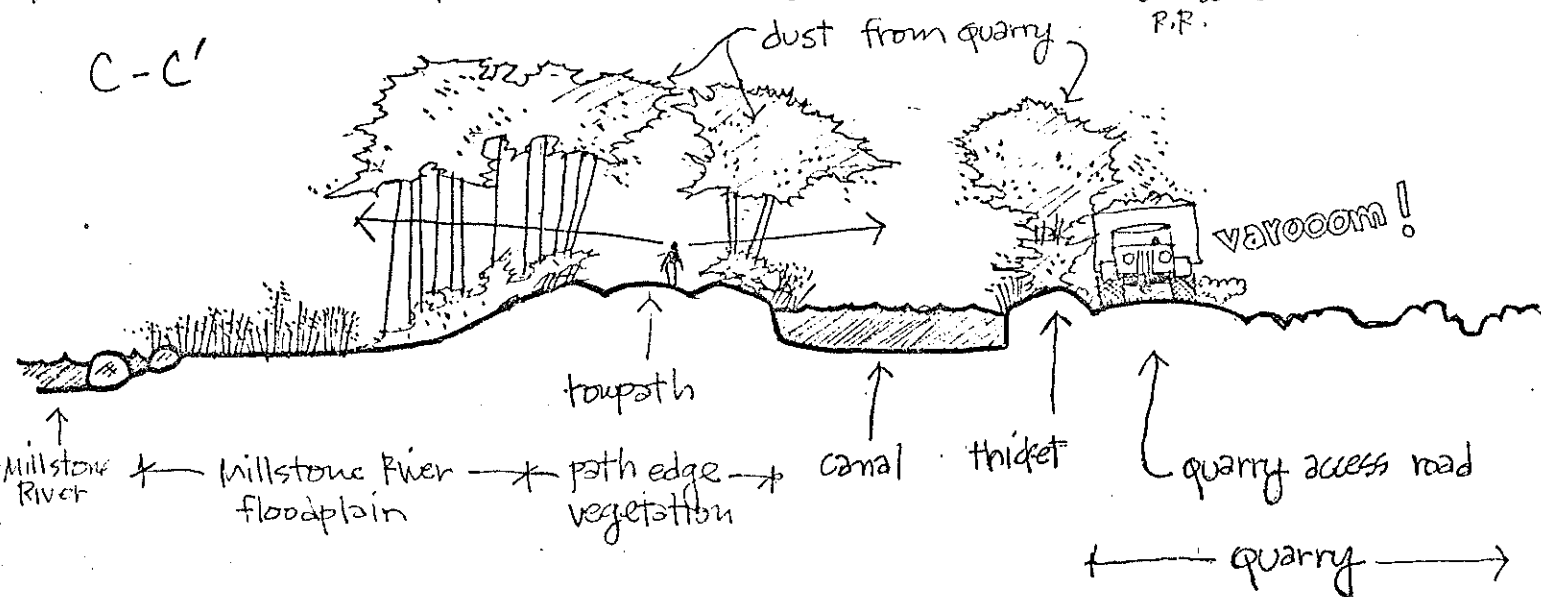 R.R.
C-C'
dust from quarry
varooom!
towpath
Millstone
River
Millstone River
floodplain
path edge
vegetation
canal
thicket
quarry access road
quarry